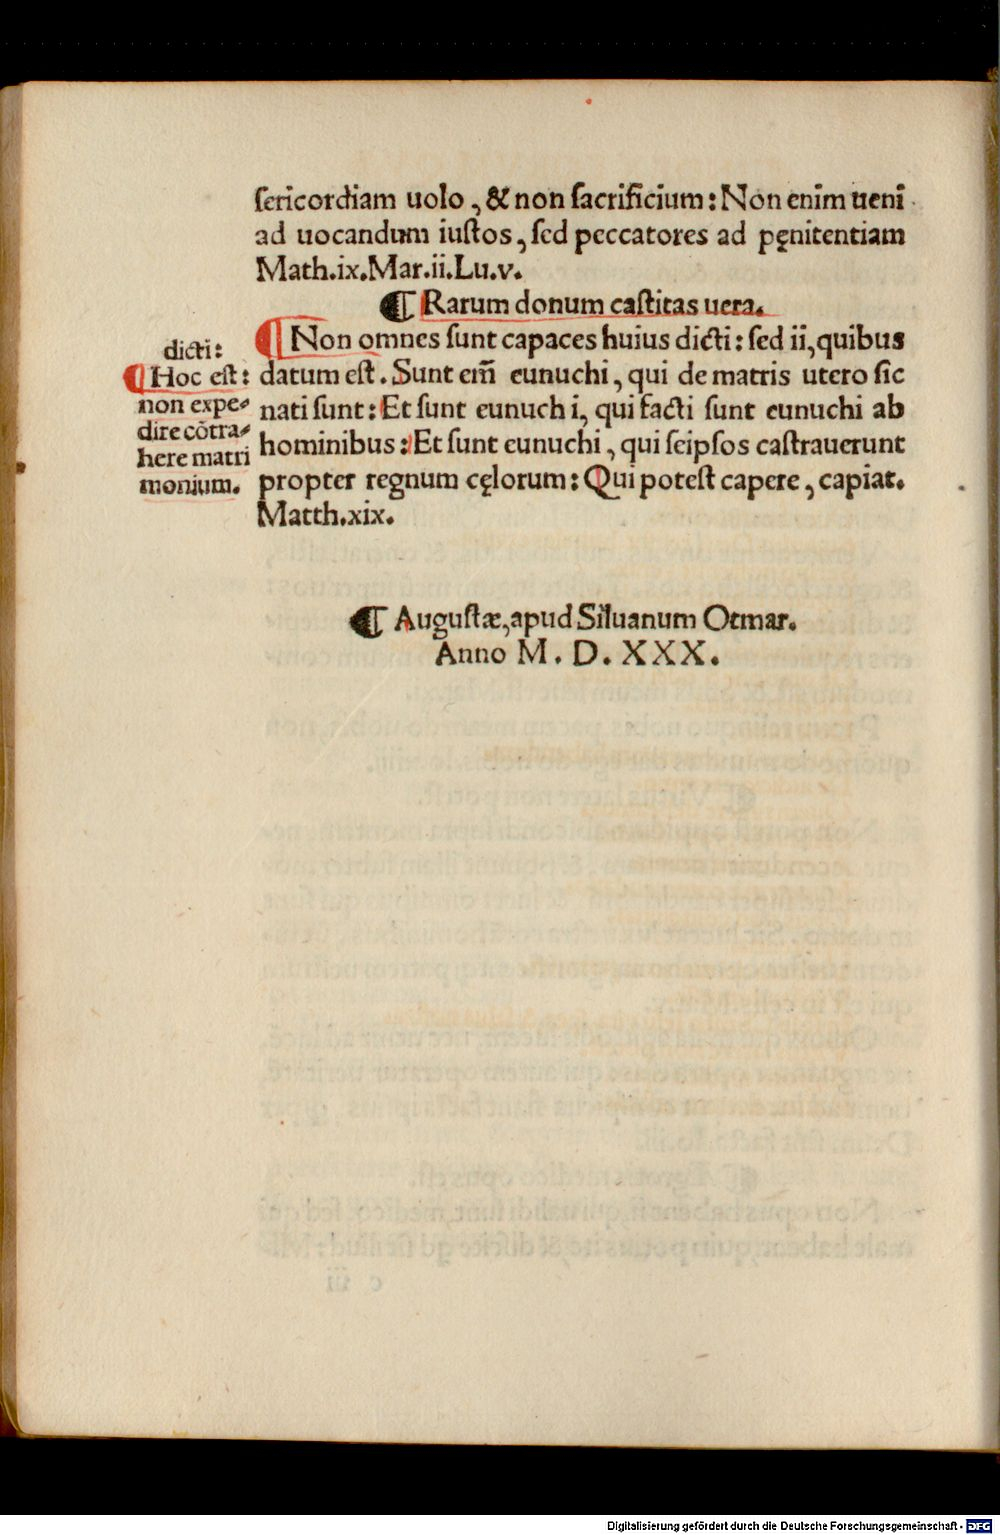 ſericordiam uolo, & non ſacrificium: Non enim ueni
ad uocandum iuſtos, ſed peccatores ad pęnitentiam
Math.ix.Mar.ii.Lu.v.
¶ Rarum donum caſtitas uera.
¶ Non omnes ſunt capaces huius dicti: ſed ii, quibus
datum eſt. Sunt em̃ eunuchi, qui de matris utero ſic
nati ſunt: Et ſunt eunuchi, qui facti ſunt eunuchi ab
hominibus: Et ſunt eunuchi, qui ſeipſos caſtrauerunt
propter regnum cęlorum: Qui poteſt capere, capiat.
Matth.xix.
dicti:
¶ Hoc eſt:
non expe⸗
dire cõtra⸗
here matri
monium.
¶ Auguſtæ, apud Siluanum Otmar.
Anno M. D. XXX.
Digitalisierung gefördert durch die Deutsche Forschungsgemeinschaft - DFG